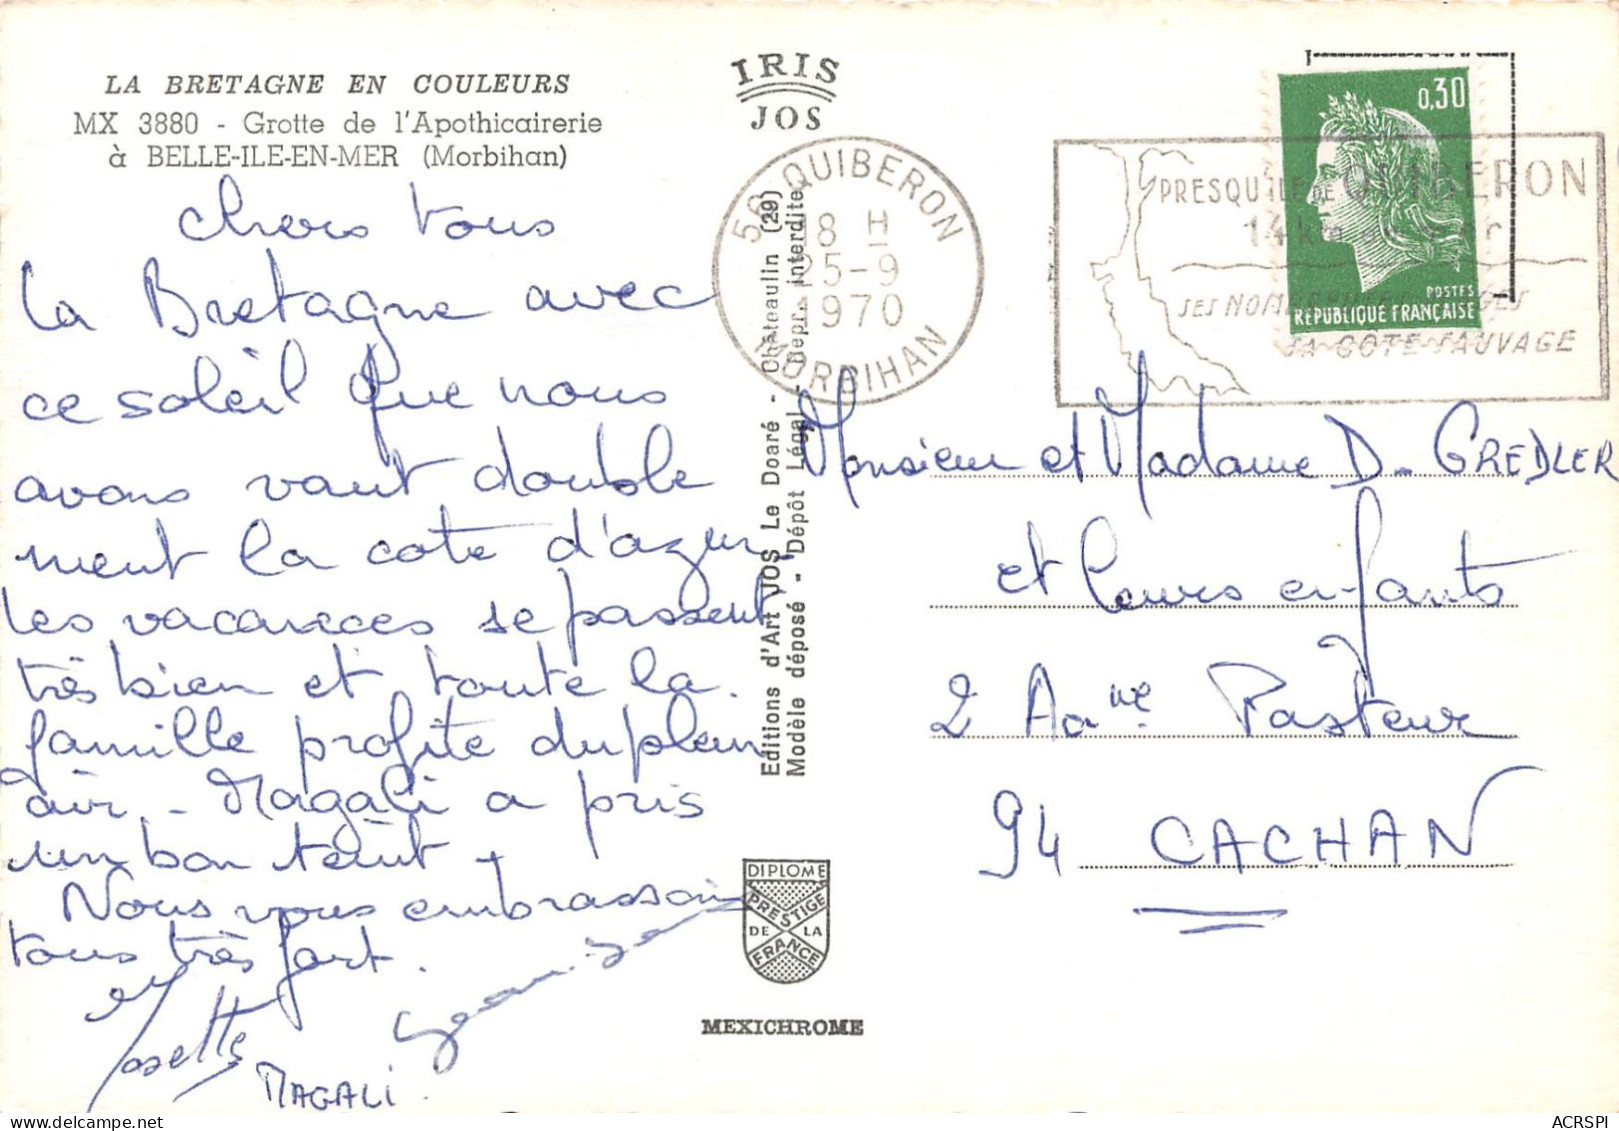 LA BRETAGNE EN COULEURS
MX 3880 - Grotte de l'Apothicairerie
à BELLE-ILE-EN-MER (Morbihan)
chers tous
la Bretagne avec
ce soleil que nous
avons vaut double
ment la cote d'azur
les vacances se passent
très bien et toute la
famille profite du plein
air - Magali a pris
un bon teint
Nous vous embrassons
tous très fort.
Josette
MAGALI.
IRIS
JOS
56 QUIBERON
18 H
25-9
1970
MORBIHAN
Editions d'Art JOS Le Doaré - Châteaulin (29)
Modèle déposé - Dépôt Légal - Repr. interdite
DIPLOME
PRESTIGE
DE LA
FRANCE
MEXICHROME
0,30
POSTES
REPUBLIQUE FRANÇAISE
PRESQU'ILE DE QUIBERON
14 km en mer
SES NOMBREUSES PLAGES
SA COTE SAUVAGE
Monsieur et Madame D. GREDLER
et leurs enfants
2 Aa nue Pasteur
94 CACHAN
ACRSPI